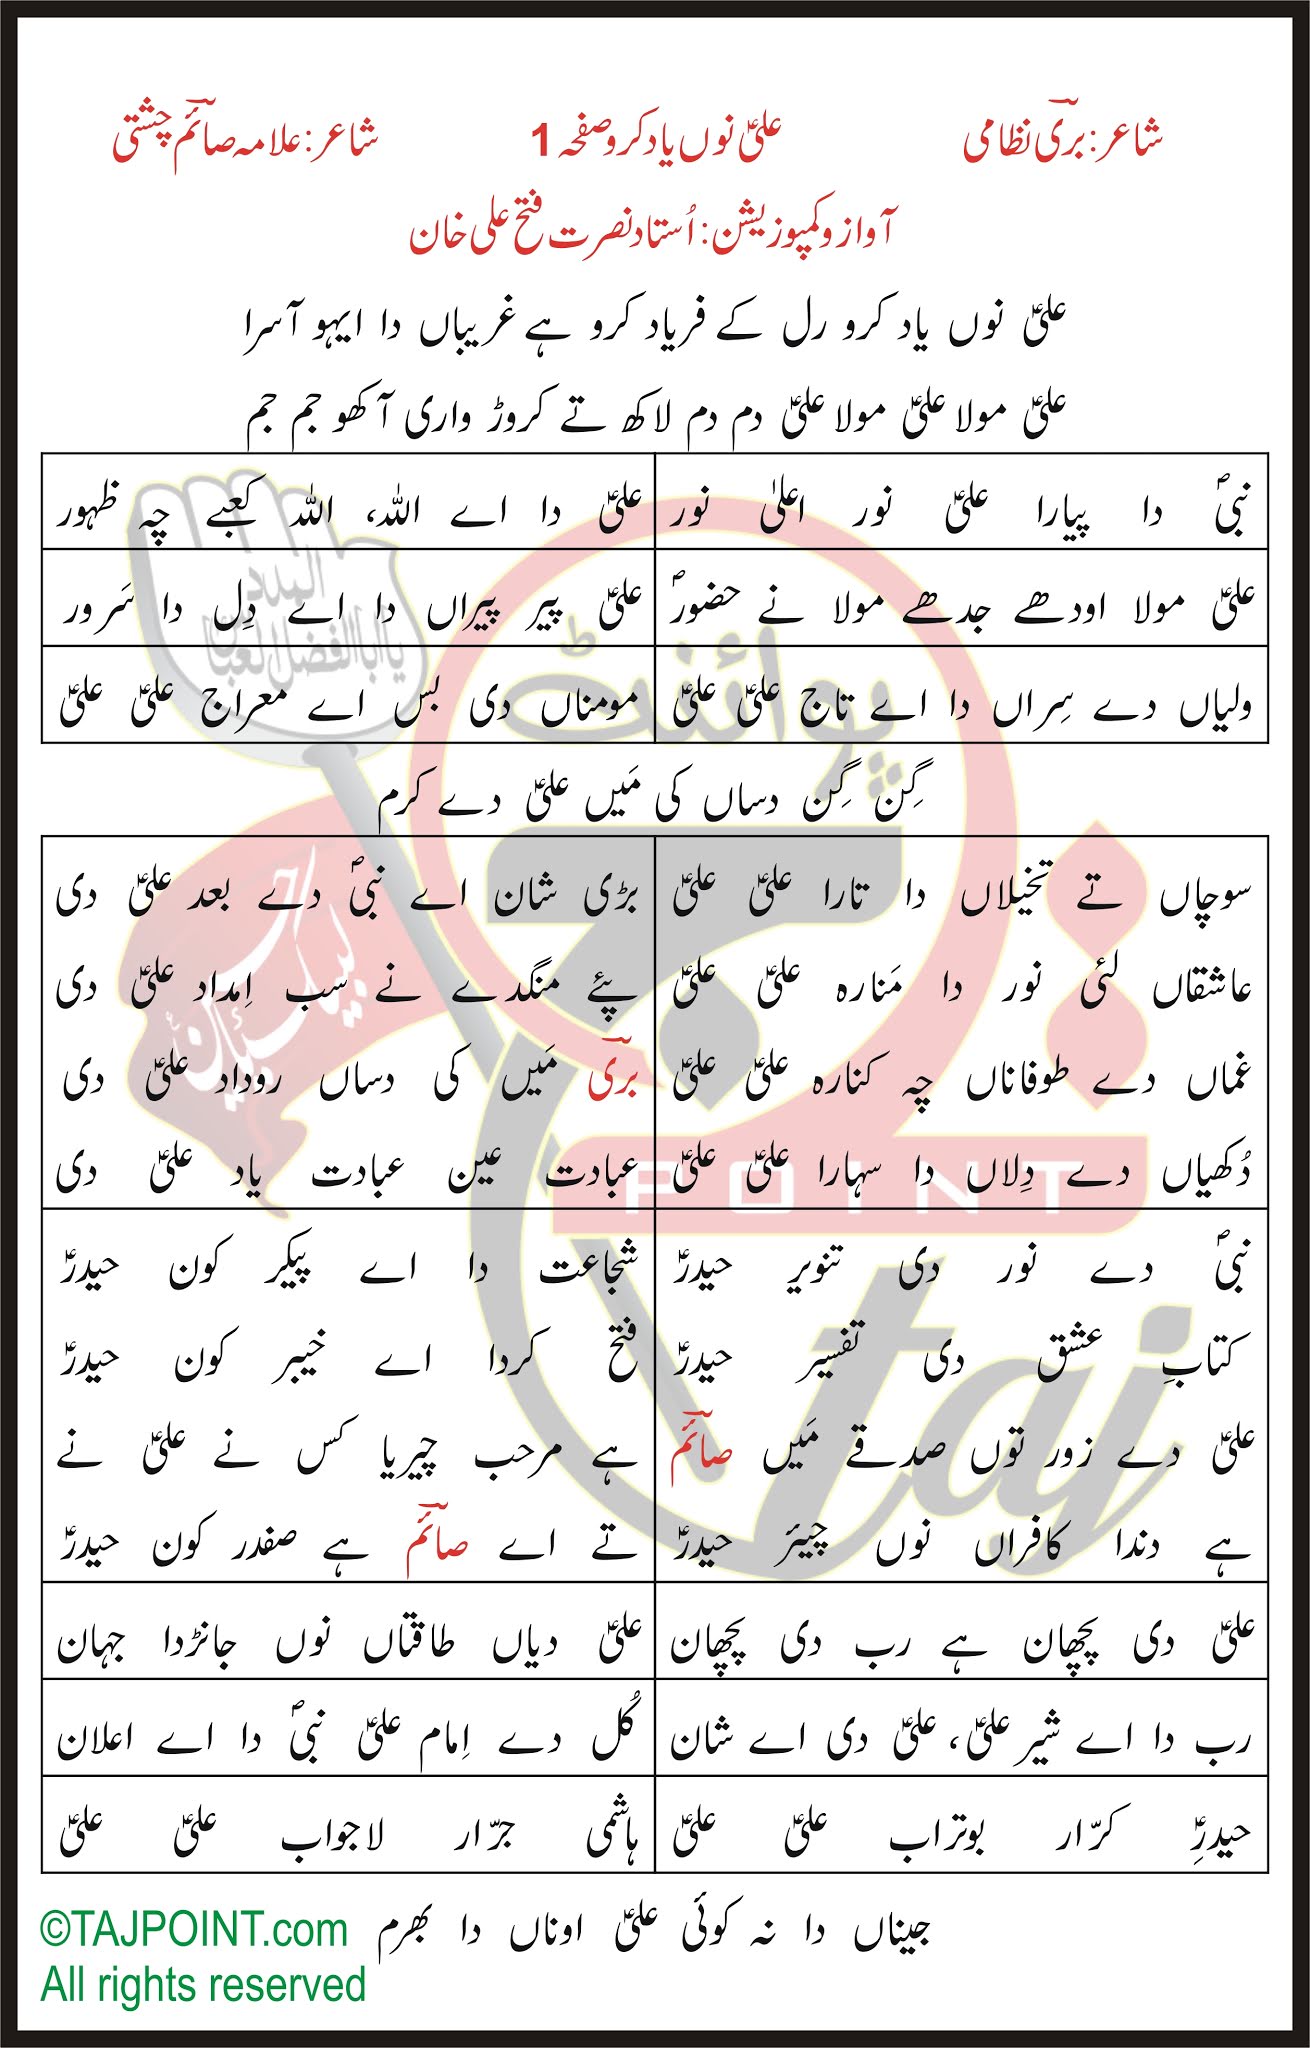 شاعر: بری نظامی
علیؑ نوں یاد کرو صفحہ 1
شاعر: علامہ صائم چشتی
آواز و کمپوزیشن: اُستاد نصرت فتح علی خان
علیؑ نوں یاد کرو رل کے فریاد کرو ہے غریباں دا ایہو آسرا
علیؑ مولا علیؑ مولا علیؑ دم دم لاکھ تے کروڑ واری آکھو جم جم
نبیؐ دا پیارا علیؑ نور اعلیٰ نور
علیؑ دا اے اللہ، اللہ کعبے چہ ظہور
علیؑ مولا اودھے جدھے مولا نے حضورؐ
علیؑ پیر پیراں دا اے دِل دا سَرور
ولیاں دے سِراں دا اے تاج علیؑ علیؑ
مومناں دی بس اے معراج علیؑ علیؑ
گِن گِن دساں کی مَیں علیؑ دے کرم
سوچاں تے تخیلاں دا تارا علیؑ علیؑ
عاشقاں لئی نور دا مَنارہ علیؑ علیؑ
غماں دے طوفاناں چہ کنارہ علیؑ علیؑ
دُکھیاں دے دِلاں دا سہارا علیؑ علیؑ
بڑی شان اے نبیؐ دے بعد علیؑ دی
پئے منگدے نے سب اِمداد علیؑ دی
بری مَیں کی دساں روداد علیؑ دی
عبادت عین عبادت یاد علیؑ دی
نبیؐ دے نور دی تنویر حیدرؑ
کتابِ عشق دی تفسیر حیدرؑ
علیؑ دے زور توں صدقے مَیں صائم
ہے دندا کافراں نوں چیئر حیدرؑ
شجاعت دا اے پیکر کون حیدرؑ
فتح کردا اے خیبر کون حیدرؑ
ہے مرحب چیریا کس نے علیؑ نے
تے اے صائم ہے صفدر کون حیدرؑ
علیؑ دی پچھان ہے رب دی پچھان
علیؑ دیاں طاقتاں نوں جانڑدا جہان
رب دا اے شیر علیؑ، علیؑ دی اے شان
کُل دے اِمام علیؑ نبیؐ دا اے اعلان
حیدرِؑ کرّار بوتراب علیؑ علیؑ
ہاشمی جرّار لاجواب علیؑ علیؑ
جیناں دا نہ کوئی علیؑ اوناں دا بھرم
©TAJPOINT.com
All rights reserved
پوائنٹ
تاج
POINT
taj
المدد
یا ابالفضل العباس
لبیک یا حسینؑ